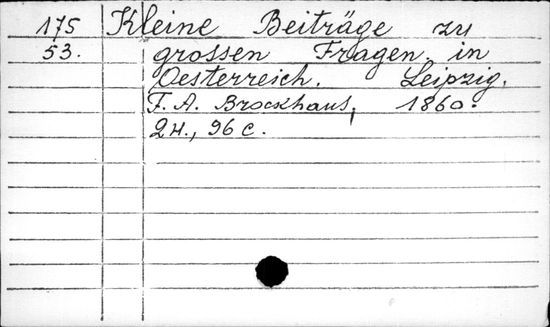 175 Kleine Beiträge zu
53. grossen Fragen in
Oesterreich. Leipzig,
F. A. Brockhaus, 1860.
2 н., 96 с.